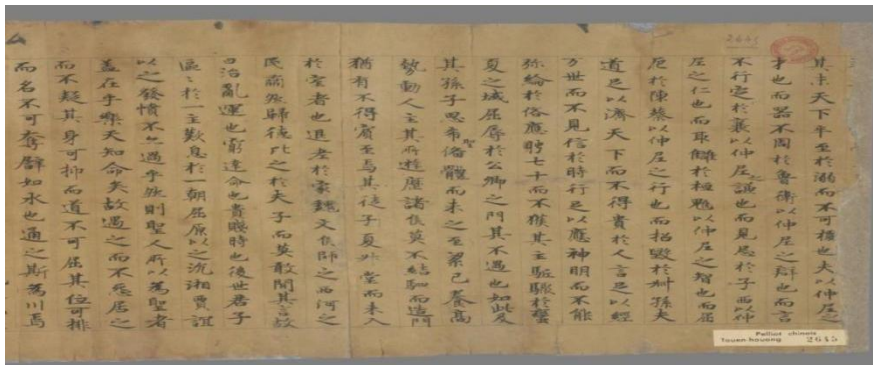 其末天下卒至於溺而不可援也夫以仲尼之
才也而器不周於魯衛以仲尼之辯也而言
不行定於哀以仲尼之謙也而見忌於子西以仲
尼之仁也而取讎於桓魋以仲尼之智也而屈
厄於陳蔡以仲尼之行也而招毀於叔孫夫
道足以濟天下而不得貴於人言足以經
万世而不見信於時行足以應神明而不能
弥綸於俗應聘七十而不獲其主駈驟於蠻
夏之域屈辱於公卿之門其不遇也如此及
其孫子思希聖備體而未之至封己養高
勢動人主其所遊歷諸侯莫不結駟而造門
猶有不得賓者焉其徒子夏升堂而未入
於室者也退老於家魏文侯師之西河之
民肅然歸德比之於夫子而莫敢間其言故
曰治亂運也窮達命也貴賤時也後世君子
區〻於一主歎息於一朝屈原以之沉湘賈誼
以之發憤不亦過乎然則聖人所以為聖者
盖在乎樂天知命矣故遇之而不怨居之
而不疑其身可抑而道不可屈其位可排
而名不可奪譬如水也通之斯為川焉
2645
Pelliot chinois
Touen-houang 2645